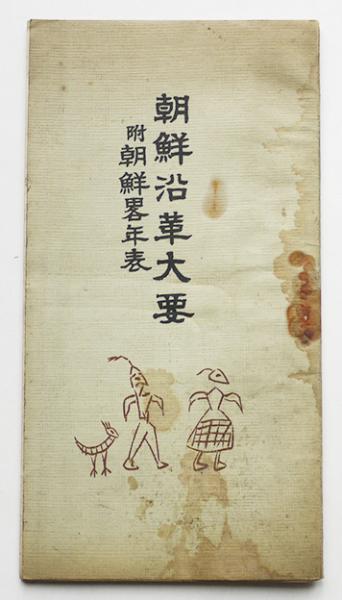 朝鮮沿革大要
附朝鮮畧年表